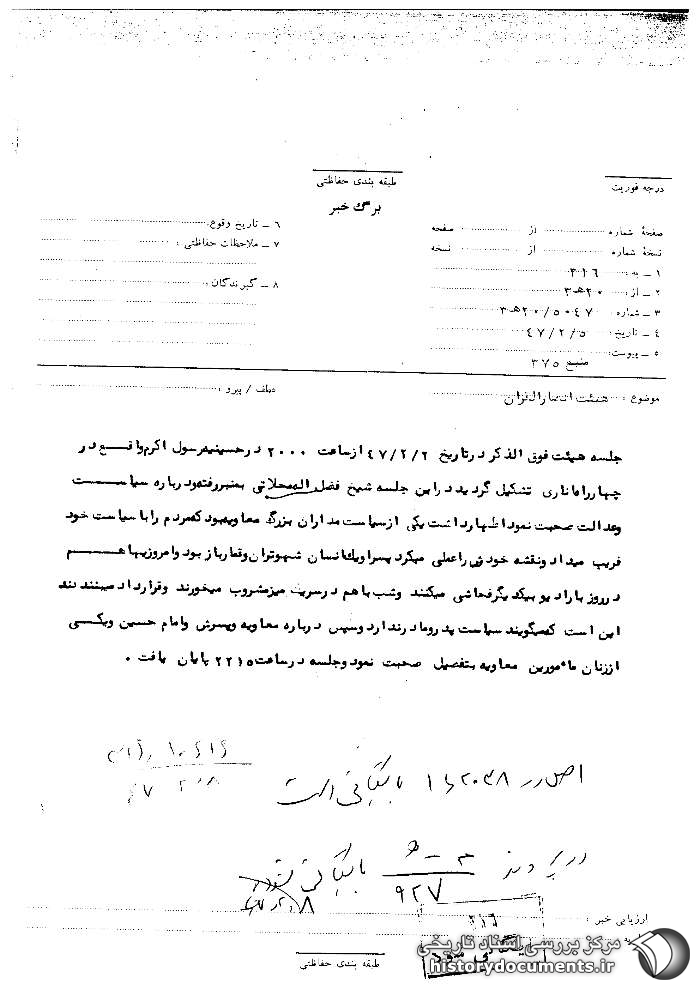 طبقه بندی حفاظتی
درجه فوریت
برگ خبر
صفحهٔ شماره از صفحه
نسخهٔ شماره از نسخه
۱ ـ به: ۳۱۶
۲ ـ از: ۲۰ هـ ۳
۳ ـ شماره: ۲۰/۵۰۴۷ هـ ۳
۴ ـ تاریخ: ۴۷/۲/۵
۵ ـ پیوست:
منبع ۳۷۵
۶ ـ تاریخ وقوع:
۷ ـ ملاحظات حفاظتی:
۸ ـ گیرندگان:
موضوع: هیئت انصارالقران
عطف / پیرو:
جلسه هیئت فوق الذکر در تاریخ ۴۷/۲/۲ از ساعت ۲۰۰۰ در حسینیه رسول اکرم واقع در
چهارراه اناری تشکیل گردید در این جلسه شیخ فضل اله محلاتی بمنبر رفته و درباره سیاست
و عدالت صحبت نمود اظهار داشت یکی از سیاست مداران بزرگ معاویه بود که مردم را با سیاست خود
فریب میداد و نقشه خودش را عملی میکرد پسر او یک انسان شهوتران و قمارباز بود و امروزیها هم
در روز با رادیو بیکدیگر فحاشی میکنند و شب با هم در سریک میز مشروب میخورند و قرارداد میبندند
این است که میگویند سیاست پدر و مادر ندارد و سپس درباره معاویه و پسرش و امام حسین و یکی
از زنان مأمورین معاویه بتفصیل صحبت نمود و جلسه در ساعت ۲۲۱۵ پایان یافت.
اصل در ۲۰۳۸ بایگانی است
در پرونده بایگانی شود
۹۲۷
ارزیابی خبر:
۳۱۶
بایگانی شود
طبقه بندی حفاظتی
مرکز بررسی اسناد تاریخی
historydocuments.ir